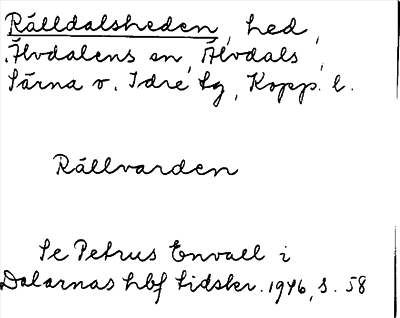 Rålldalsheden, hed,
Älvdalens sn, Älvdals,
Särna o. Idre lg, Kopp. l.
Rållvarden
Se Petrus Envall i
Dalarnas hbf tidskr. 1946, s. 58